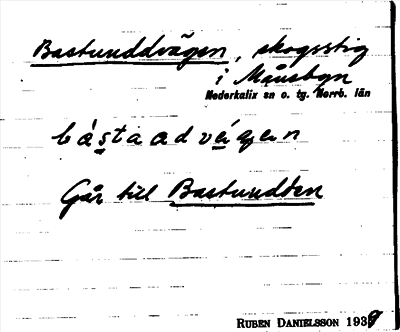 Bastunddvägen, skogsstig
i Månsbyn
Nederkalix sn o. tg. Norrb. län
bástaadvägen
Går till Bastundden
RUBEN DANIELSSON 1939